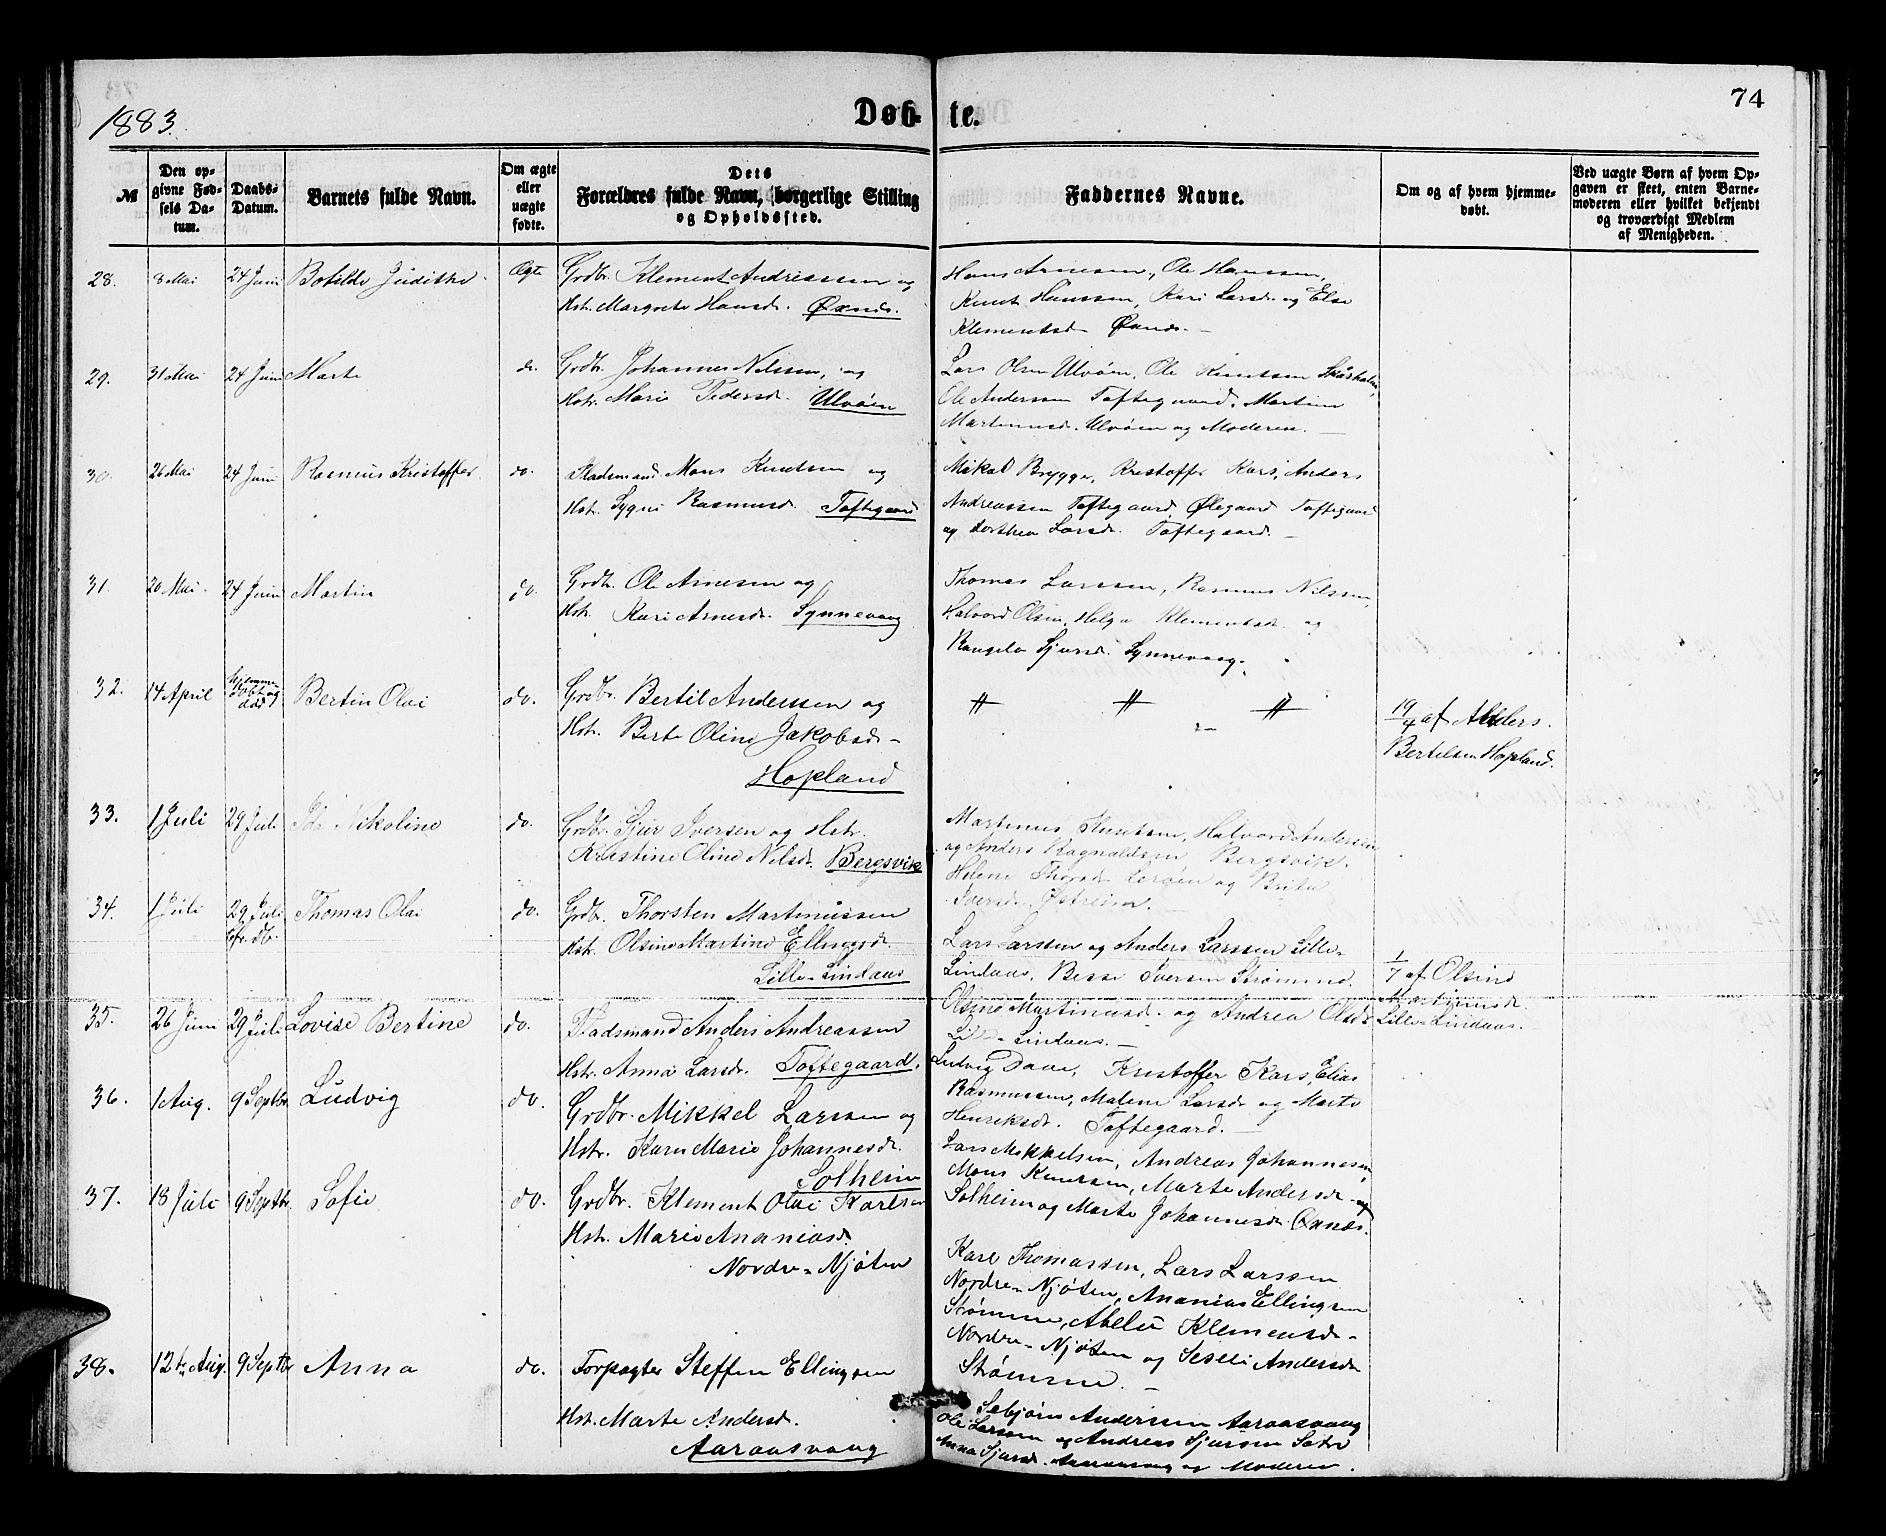 1883.
Døbte.
74
№
Den opgivne Fødsels Datum.
Daabs-Datum.
Barnets fulde Navn.
Om ægte eller uægte fødte.
Dets Forældres fulde Navn, borgerlige Stilling og Opholdssted.
Faddernes Navne.
Om og af hvem hjemmedøbt.
Ved uægte Børn af hvem Opgaven er skeet, enten Barnemoderen eller hvilket bekjendt og troværdigt Medlem af Menigheden.
28. 8 Mai 24 Juni Botilde Judithe Ægte Grdbr. Klement Andreassen og
Hst. Margrete Hansd. Øxnæs.
Hans Arnesen, Ole Hanssen,
Knut Hanssen, Kari Larsd. og Else
Klementsd. Øxnæs.
29. 31 Mai 24 Juni Marte do. Grdbr. Johannes Nilssen, og
Hst. Mari Pedersd. Ulvøen
Lars Olsen Ulvøen, Ole Knutssen Skårholm,
Ole Anderssen Toftegaard, Martine
Martinusd. Ulvøen og Moderen.
30. 26 Mai 24 Juni Rasmus Kristoffer do. Pladsmand Mons Knudsen og
Hst. Rasmusd. Toftegaard
Mikal Brygge, Kristoffer Kars, Anders
Andreassen Toftegaard, Ølegaard Toftegaard
og Dorthea Larsd. Toftegaard.
31. 20 Mai 24 Juni Martin do. Grdbr. Ole Arnesen og
Hst. Kari Arnesd. Synnevaag
Thomas Larssen, Rasmus Nilssen,
Halvord Olsen, Helga Klementsd. og
Sjursd. Synnevaag.
32. 14 April hjemmedøbt og død Bertin Olai do. Grdbr. Bertil Anderssen og
Hst. Berte Oline Jakobsd.
Hopland
〃 〃 〃
19/4 af Anders
Bertelsen Hopland.
33. 1 Juli 29 Juli Nikoline do. Grdbr. Sjur Iversen og Hst.
Kristine Oline Nilsd. Bergsvik
Martinus Knutsen, Halvord Anderssen
og Anders Ragnaldsen Bergsvik.
Helene og Brita
Iversd. Østreim.
34. 1 Juli 29 Juli Thomas Olai do. Grdbr. Thorsten Martinussen
Hst. Olsine Martine Ellingsd.
Lille-Lindaas
Lars Larssen og Anders Larssen Lille-
Lindaas, Besse Iversen Strømme.
Olsine Martinusd. og Andrea Olsd.
Lille-Lindaas.
1/7 af Olsine
Martinusd.
Lille-Lindaas.
35. 26 Juni 29 Juli Lovise Bertine do. Pladsmand Anders Andreassen
Hst. Anna Larsd. Toftegaard.
Ludvig Daae, Kristoffer Kars, Elias
Rasmussen, Malene Larsd. og Marte
Henriksd. Toftegaard.
36. 1 Aug. 9 Septbr. Ludvig do. Grdbr. Mikkel Larssen og
Hst. Karn Marie Johannesd.
Solheim
Lars Mikkelsen, Andreas Johannesen,
Mons Knutsen, Marte Andersd. og
Solheim og Marte Johannesd. Øxnæs.
37. 18 Juli 9 Septbr. Sofie do. Grdbr. Klement Olai Karlsen
Hst. Marie Ananiasd.
Nordre-Njøten
Karl Thomassen, Lars Larssen
Nordre-Njøten, Ananias Ellingsen
Strømme, Abelie Klemensd.
Nordre-Njøten og Andersd.
Strømme.
38. 12te Aug. 9 Septbr Anna do. Forpagter Steffen Ellingsen
Hst. Marte Andersd.
Aaraasvaag
Sebjørn Anderssen Aaraasvaag
Ole Larssen og Andreas Sjursen
Anna Sjursd. Aaraasvaag og Moderen.